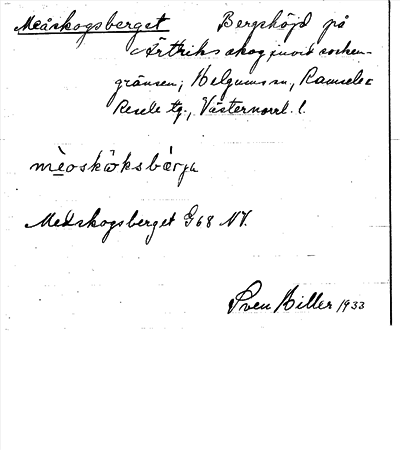 Meåskogsberget Bergshöjd på
Ärtriks skog invid socken-
gränsen, Helgums sn, Ramsele o
Resele tg., Västernorrl. l.
mèoskòksbár̀ja
Medskogsberget G68 NV.
Sven Hiller 1933